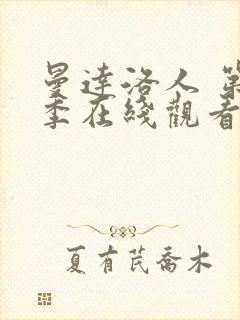 曼達洛人 第
季在綫觀看
夏有芃喬木